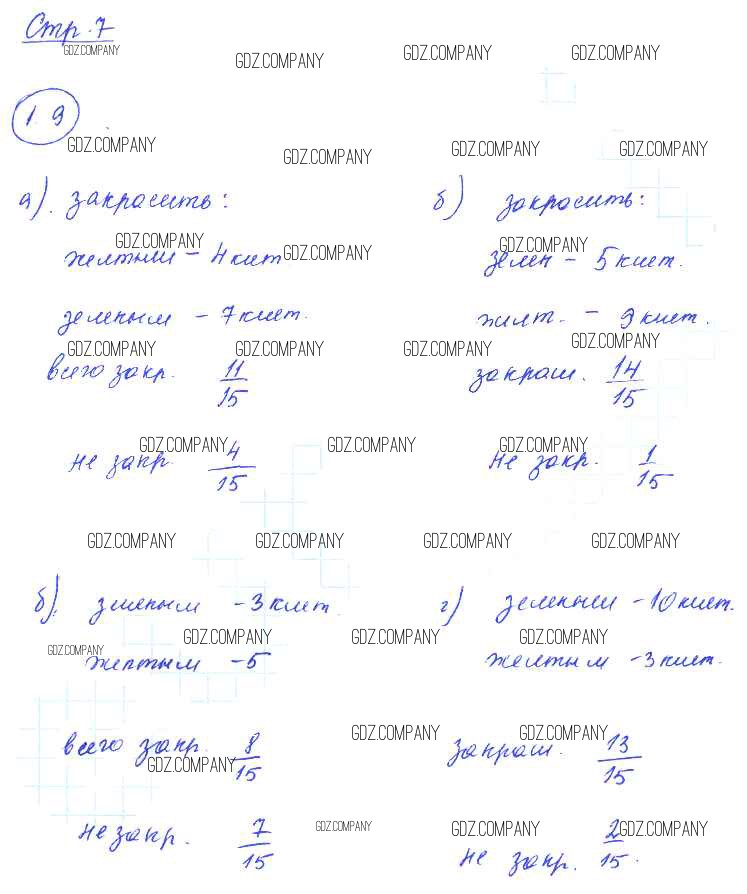 Стр. 7
GDZ.COMPANY GDZ.COMPANY GDZ.COMPANY GDZ.COMPANY
1.9
GDZ.COMPANY GDZ.COMPANY GDZ.COMPANY GDZ.COMPANY
а). закрасить:
GDZ.COMPANY GDZ.COMPANY
желтыми - 4 клет
зеленым - 7 клет.
GDZ.COMPANY GDZ.COMPANY
всего закр. 11/15
GDZ.COMPANY GDZ.COMPANY
не закр. 4/15
б) закрасить:
GDZ.COMPANY
зелен - 5 клет.
желт. - 9 клет.
GDZ.COMPANY GDZ.COMPANY
закраш. 14/15
GDZ.COMPANY
не закр. 1/15
GDZ.COMPANY GDZ.COMPANY GDZ.COMPANY GDZ.COMPANY
б). зеленым - 3 клет.
GDZ.COMPANY GDZ.COMPANY
желтым - 5
всего закр. 8/15
GDZ.COMPANY
не закр. 7/15
GDZ.COMPANY
г) зеленым - 10 клет.
GDZ.COMPANY GDZ.COMPANY
желтым - 3 клет.
GDZ.COMPANY GDZ.COMPANY
закраш. 13/15
GDZ.COMPANY GDZ.COMPANY
не закр. 2/15.